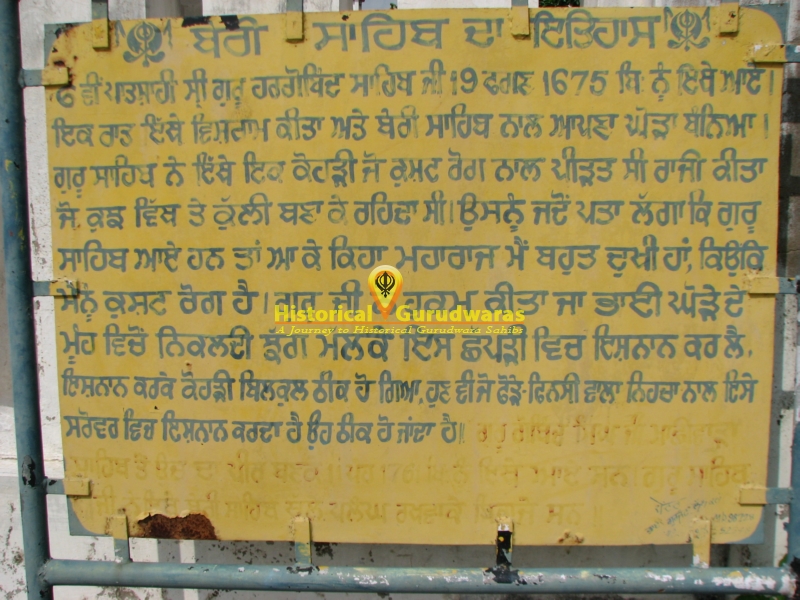 ਬੇਰੀ ਸਾਹਿਬ ਦਾ ਇਤਿਹਾਸ
6 ਵੀਂ ਪਾਤਸ਼ਾਹੀ ਸ੍ਰੀ ਗੁਰੂ ਹਰਗੋਬਿੰਦ ਸਾਹਿਬ ਜੀ 19 ਫਗਣ 1675 ਬਿ: ਨੂੰ ਇਥੇ ਆਏ।
ਇਕ ਰਾਤ ਇੱਥੇ ਵਿਸ਼ਰਾਮ ਕੀਤਾ ਅਤੇ ਬੇਰੀ ਸਾਹਿਬ ਨਾਲ ਆਪਣਾ ਘੋੜਾ ਬੰਨਿਆ।
ਗੁਰੂ ਸਾਹਿਬ ਨੇ ਇੱਥੇ ਇਕ ਕੋਹੜੀ ਜੋ ਕੁਸ਼ਟ ਰੋਗ ਨਾਲ ਪੀੜਤ ਸੀ ਰਾਜੀ ਕੀਤਾ
ਜੋ ਕੁਝ ਵਿੱਥ ਤੇ ਕੁੱਲੀ ਬਣਾ ਕੇ ਰਹਿੰਦਾ ਸੀ। ਉਸਨੂੰ ਜਦੋਂ ਪਤਾ ਲੱਗਾ ਕਿ ਗੁਰੂ
ਸਾਹਿਬ ਆਏ ਹਨ ਤਾਂ ਆ ਕੇ ਕਿਹਾ ਮਹਾਰਾਜ ਮੈਂ ਬਹੁਤ ਦੁਖੀ ਹਾਂ, ਕਿਉਂਕਿ
ਮੈਨੂੰ ਕੁਸ਼ਟ ਰੋਗ ਹੈ। ਗੁਰੂ ਜੀ ਹੁਕਮ ਕੀਤਾ ਜਾ ਭਾਈ ਘੋੜੇ ਦੇ
Historical Gurudwaras
A Journey to Historical Gurudwara Sahibs
ਮੂੰਹ ਵਿਚੋਂ ਨਿਕਲਦੀ ਝੱਗ ਮਲਕੇ ਇਸ ਛਪੜੀ ਵਿਚ ਇਸ਼ਨਾਨ ਕਰ ਲੈ,
ਇਸ਼ਨਾਨ ਕਰਕੇ ਕੋਹੜੀ ਬਿਲਕੁਲ ਠੀਕ ਹੋ ਗਿਆ, ਹੁਣ ਵੀ ਜੋ ਫੋੜੇ-ਫਿਨਸੀ ਵਾਲਾ ਨਿਹਚਾ ਨਾਲ ਇਸੇ
ਸਰੋਵਰ ਵਿਚ ਇਸ਼ਨਾਨ ਕਰਦਾ ਹੈ ਉਹ ਠੀਕ ਹੋ ਜਾਂਦਾ ਹੈ॥ ਗੁਰੂ ਗੋਬਿੰਦ ਸਿੰਘ ਜੀ
ਸਾਹਿਬ ਤੋਂ ਇਥੇ ਆਏ ਸਨ। ਗੁਰੂ ਸਾਹਿਬ
ਬੇਰੀ ਸਾਹਿਬ